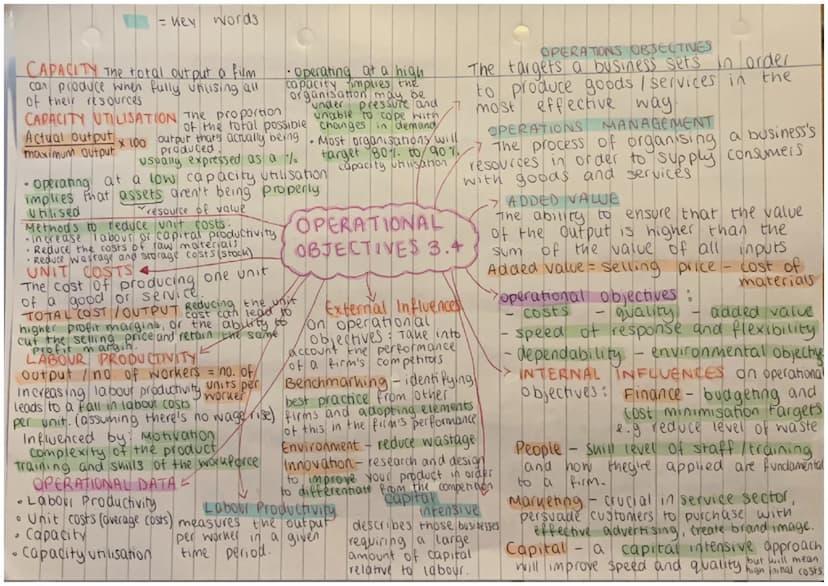 = Key words
CAPACITY The total output a film
can produce when fully utilising all
of their resources
CAPACITY UTILISATION The proportion
of the total possible
output that's actually being
produced.
Actual output
maximum output × 100
usually expressed as a %
• operating at a low capacity utilisation
implies that assets aren't being properly
utilised
resource of value
Methods to reduce unit costs:
• Increase labour or capital productivity
• Reduce the costs of raw materials
• Reduce wastage and storage costs (stock)
UNIT COSTS
The cost of producing one unit
of a good or service.
TOTAL COST / OUTPUT Reducing the unit
cost can lead to
higher profit margins, or the ability to
cut the selling price and retain the same
profit margin.
LABOUR PRODUCTIVITY
output / no. of workers = no. of
units per
worker
Increasing labour productivity
leads to a fall in labour costs
per unit. (assuming there's no wage rise)
Influenced by: Motivation
complexity of the product
Training and skills of the workforce
OPERATIONAL DATA
• Labour Productivity
• Unit costs (average costs)
• Capacity
• Capacity utilisation
• Operating at a high
capacity implies the
organisation may be
under pressure and
unable to cope with
changes in demand
• Most organisations will
target 80% to 90%
capacity utilisation
OPERATIONAL
OBJECTIVES 3.4
External Influences
on operational
objectives: Take into
account the performance
of a firm's competitors
Benchmarking - identifying
best practice from other
firms and adopting elements
of this in the firm's performance
Environment - reduce wastage
Innovation - research and design
to improve your product in order
to differentiate from the competition
Labour Productivity
measures the output
per worker in a given
time period.
Capital
intensive
describes those businesses
requiring a large
amount of capital
relative to labour.
OPERATIONS OBJECTIVES
The targets a business sets in order
to produce goods/services in the
most effective way
OPERATIONS MANAGEMENT
The process of organising a business's
resources in order to supply consumers
with goods and services
ADDED VALUE
The ability to ensure that the value
of the output is higher than the
sum of the value of all inputs
Added value = selling price - cost of
materials
operational objectives:
- costs - quality - added value
- speed of response and flexibility
- dependability - environmental objectives
INTERNAL INFLUENCES on operational
objectives: Finance - budgeting and
cost minimisation targets
e.g reduce level of waste
People - skill level of staff/training
and how they're applied are fundamental
to a firm.
Marketing - crucial in service sector,
persuade customers to purchase with
effective advertising, create brand image.
Capital - a capital intensive approach
will improve speed and quality but will mean
high initial costs.